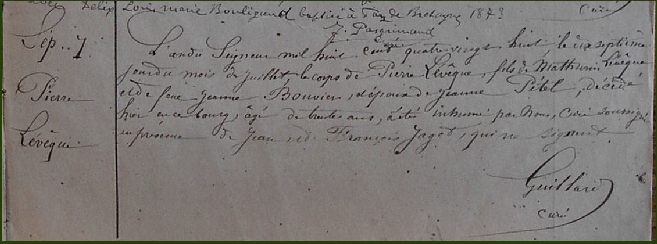 Louis marie Bouligand baptisé à Fay de Bretagne 1873
Curé
Sép.. 7
Pierre
Levêque
L'an du Seigneur mil huit cent quatre vingt huit, le dixseptième
jour du mois de Juillet le corps de Pierre Levêque, fils de Mathurin Levêque
et de feue Jeanne Bouvier, époux de Jeanne Pétel, décédé
hier en ce bourg, âgé de trente ans, a été inhumé par Nous, Curé soussigné
en présence de Jean, et de François Jagot, qui ne signent.
Guillard
curé